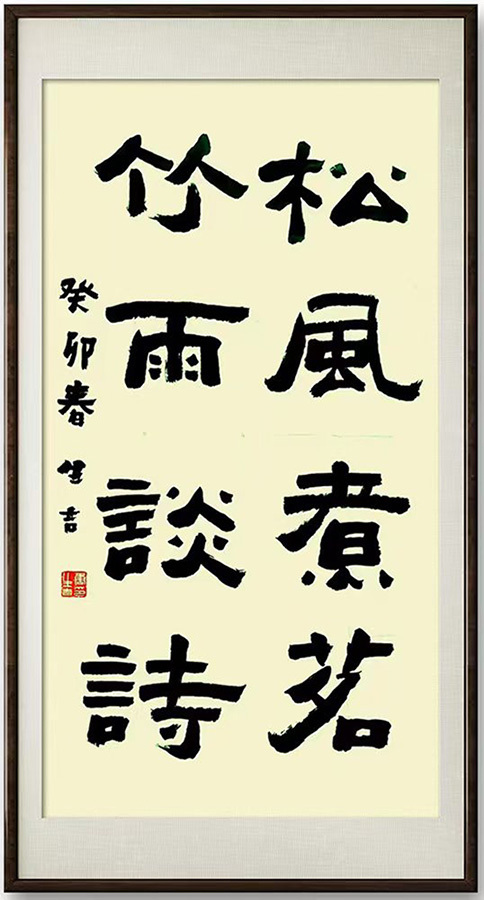 松風煮茗
竹雨談詩
癸卯春